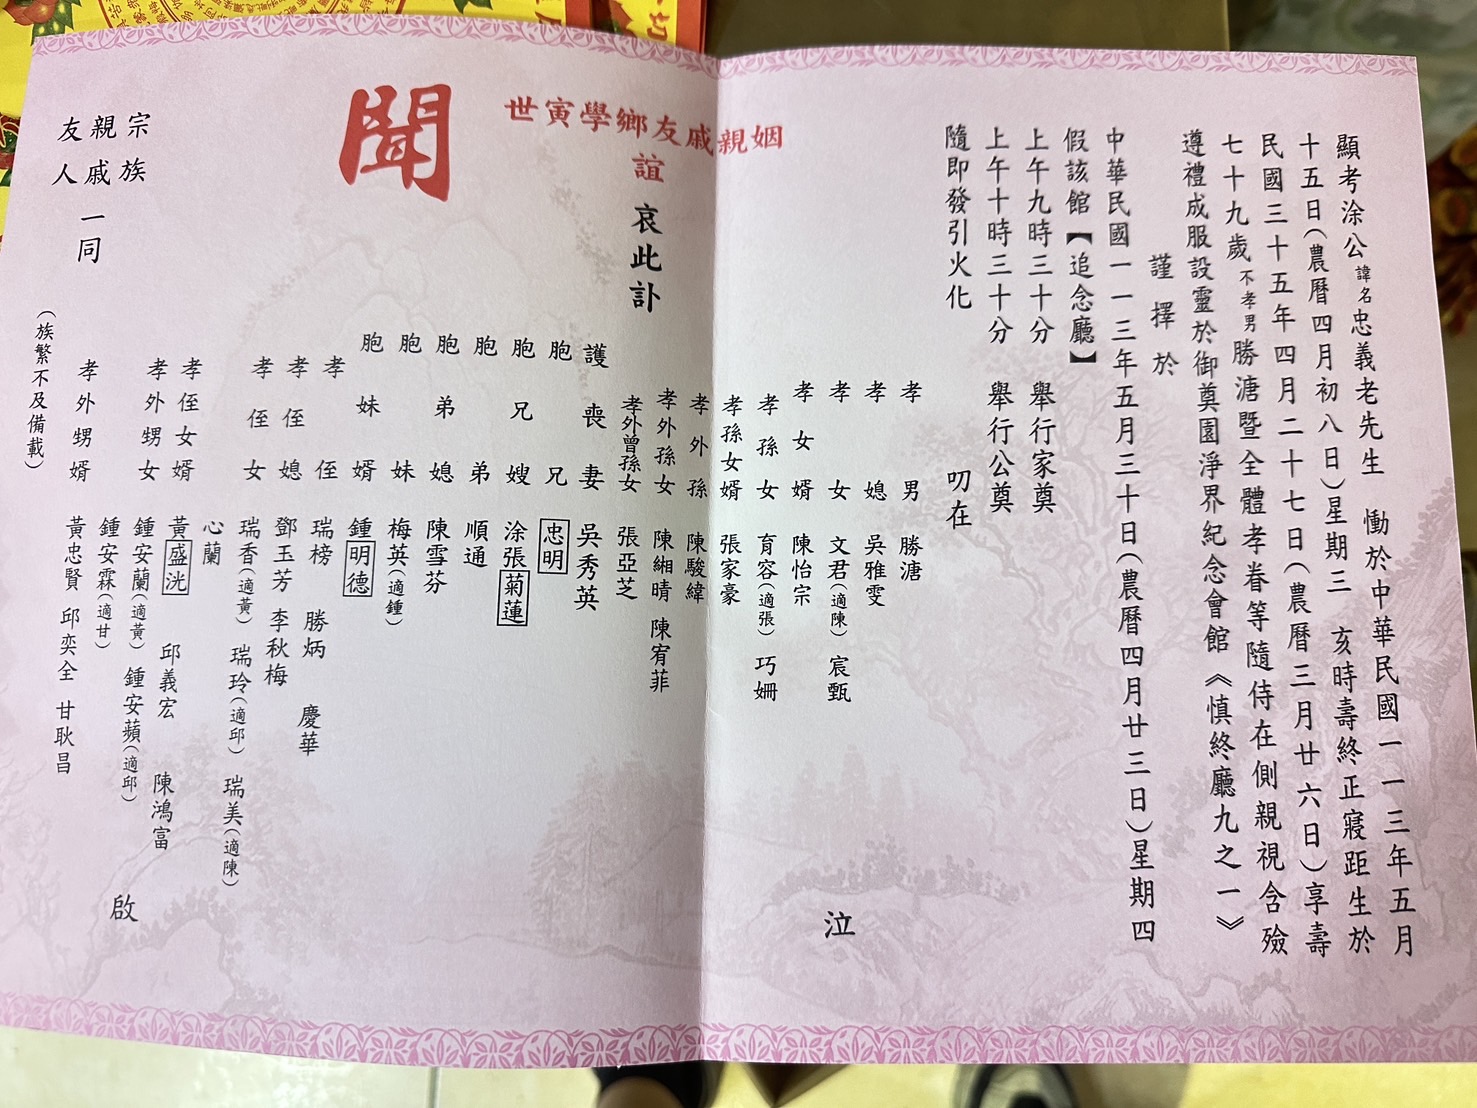 顯考涂公諱名忠義老先生 慟於中華民國一一三年五月
十五日(農曆四月初八日)星期三 亥時壽終正寢距生於
民國三十五年四月二十七日(農曆三月廿六日)享壽
七十九歲不孝男勝溏暨全體孝眷等隨侍在側親視含殮
遵禮成服設靈於御奠園淨界紀念會館《慎終廳九之一》
謹擇於
中華民國一一三年五月三十日(農曆四月廿三日)星期四
假該館【追念廳】
上午九時三十分 舉行家奠
上午十時三十分 舉行公奠
隨即發引火化 叨在
姻親戚友鄉學寅世
誼 哀此訃
聞
孝男 勝溏
孝媳 吳雅雯
孝女 文君(適陳) 宸甄
孝女婿 陳怡宗
孝孫女 育容(適張) 巧姍
孝孫女婿 張家豪
孝外孫 陳駿緯
孝外孫女 陳緗晴 陳宥菲
孝外曾孫女 張亞芝
護喪妻 吳秀英
胞兄 忠明
胞兄嫂 涂張菊蓮
胞弟 順通
胞弟媳 陳雪芬
胞妹 梅英(適鍾)
胞妹婿 鍾明德
孝侄 瑞榜 勝炳 慶華
孝侄媳 鄧玉芳 李秋梅
孝侄女 瑞香(適黃) 瑞玲(適邱) 瑞美(適陳)
心蘭
孝侄女婿 黃盛洸 邱義宏 陳鴻富
孝外甥女 鍾安蘭(適黃) 鍾安蘋(適邱)
鍾安霖(適甘)
孝外甥婿 黃忠賢 邱奕全 甘耿昌
(族繁不及備載)
泣
啟
宗族
親戚一同
友人